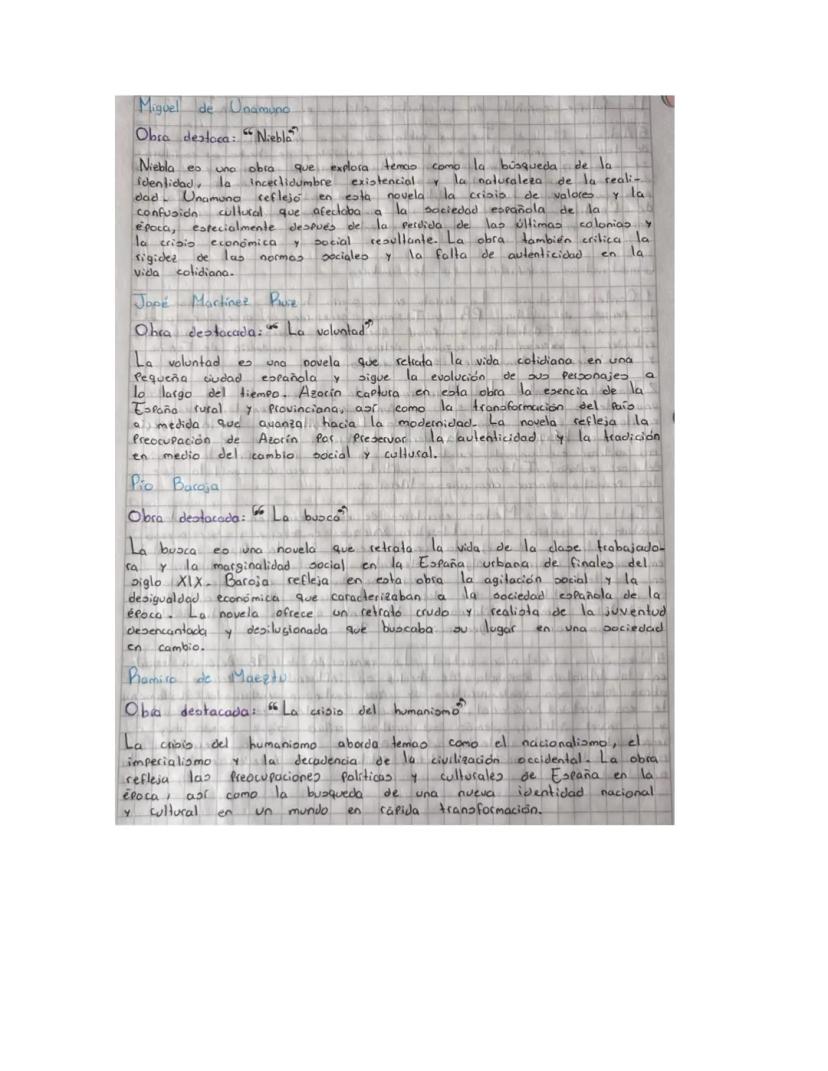 Miguel de Unamuno
Obra destaca: “Niebla”
Niebla es una obra que explora temas como la búsqueda de la
identidad, la incertidumbre existencial y la naturaleza de la reali-
dad. Unamuno reflejó en esta novela la crisis de valores y la
confusión cultural que afectaba a la sociedad española de la
época, especialmente después de la perdida de las últimas colonias y
la crisis económica y social resultante. La obra también critica la
rigidez de las normas sociales y la falta de autenticidad en la
vida cotidiana.
José Martínez Ruiz
Obra destacada: “La voluntad”
La voluntad es una novela que retrata la vida cotidiana en una
Pequeña ciudad española y sigue la evolución de sus Personajes a
lo largo del tiempo. Azorín captura en esta obra la esencia de la
España rural y Provinciana, así como la transformación del País
a medida que avanza hacia la modernidad. La novela refleja la
Preocupación de Azorín Por Preservar la autenticidad y la tradición
en medio del cambio social y cultural.
Pío Baroja
Obra destacada: “La busca”
La busca es una novela que retrata la vida de la clase trabajado-
ra y la marginalidad social en la España urbana de finales del
siglo XIX. Baroja refleja en esta obra la agitación social y la
desigualdad económica que caracterizaban a la sociedad española de la
época. La novela ofrece un retrato crudo y realista de la juventud
desencantada y desilusionada que buscaba su lugar en una sociedad
en cambio.
Ramiro de Maeztu
Obra destacada: “La crisis del humanismo”
La crisis del humanismo aborda temas como el nacionalismo, el
imperialismo y la decadencia de la civilización occidental. La obra
refleja las Preocupaciones Políticas y culturales de España en la
época, así como la busqueda de una nueva identidad nacional
y cultural en un mundo en rápida transformación.